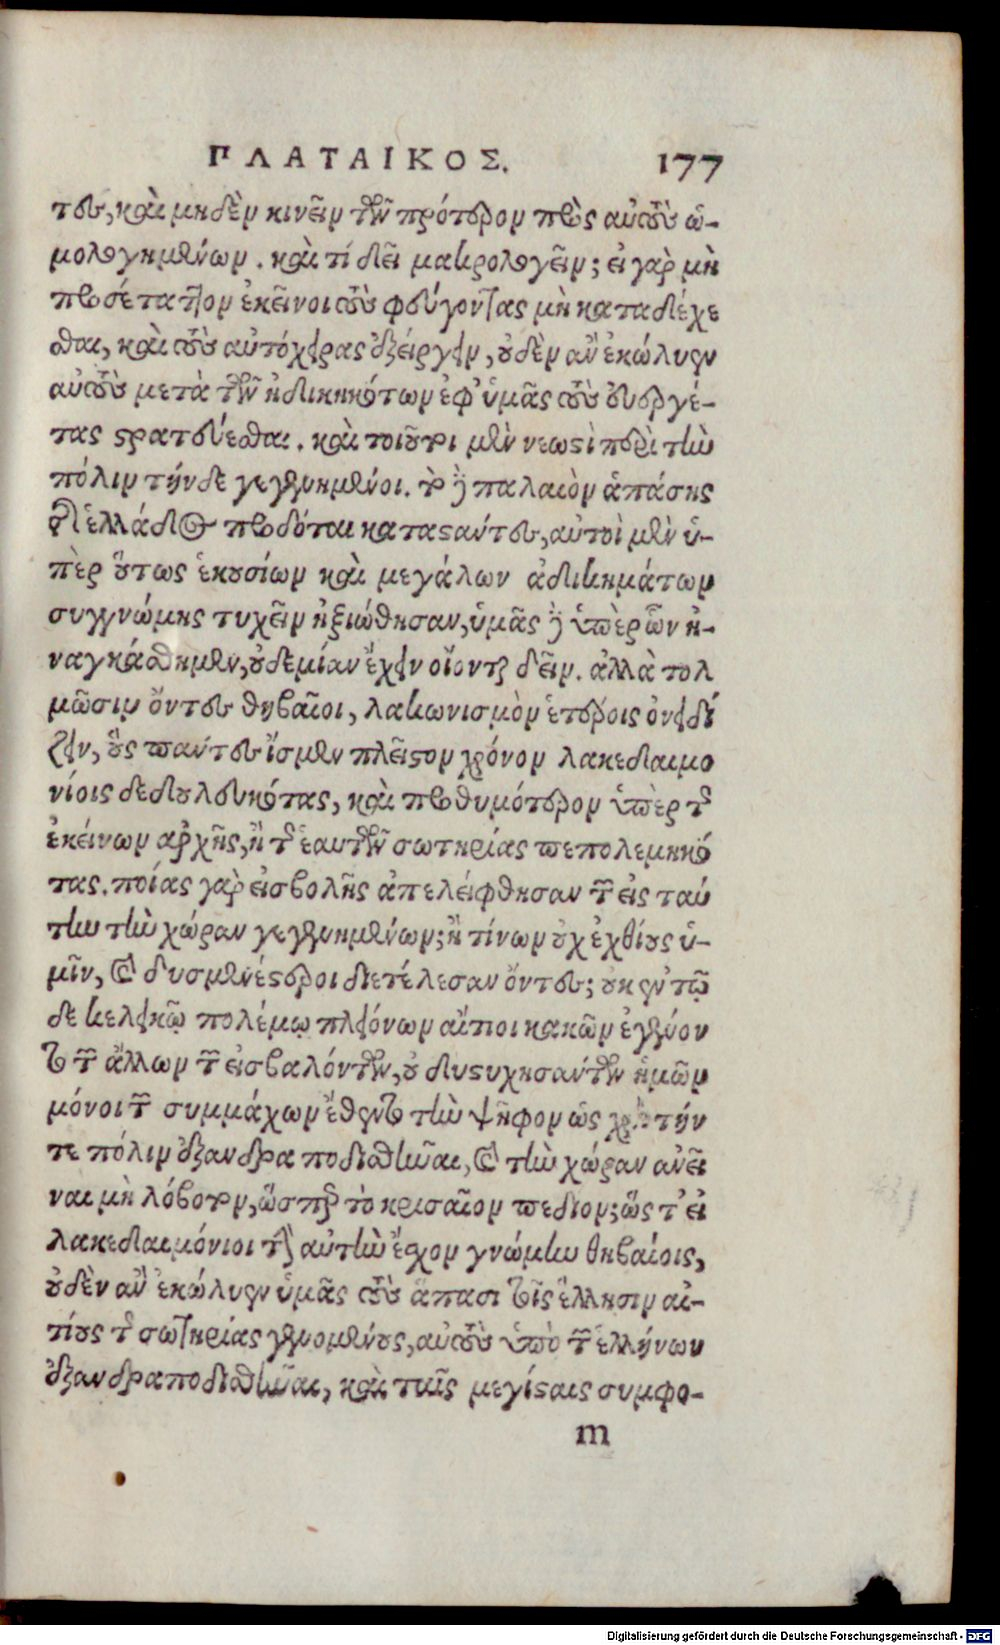 ΠΛΑΤΑΙΚΟΣ. 177
τες, καὶ μηδὲν κινεῖν τῶν πρότερον πρὸς αὐτοὺς ὡ-
μολογημένων. καὶ τί δεῖ μακρολογεῖν; εἰ γὰρ μὴ
προσέταττον ἐκεῖνοι τοὺς φεύγοντας μὴ καταδέχε
σθαι, καὶ τοὺς αὐτόχειρας ἐξείργειν, οὐδὲν ἂν ἐκώλυεν
αὐτοὺς μετὰ τῶν ἠδικηκότων ἐφ' ὑμᾶς τοὺς εὐεργέ-
τας στρατεύεσθαι. καὶ τοιοῦτοι μὲν νεωστὶ περὶ τὴν
πόλιν τήνδε γεγενημένοι. τὸ δὲ παλαιὸν ἁπάσης
τῆς ἑλλάδος προδόται καταστάντες, αὐτοὶ μὲν ὑ-
πὲρ οὕτως ἑκουσίων καὶ μεγάλων ἀδικημάτων
συγγνώμης τυχεῖν ἠξιώθησαν, ὑμᾶς δὲ ὑπὲρ ὧν ἠ-
ναγκάσθημεν, οὐδεμίαν ἔχειν οἴονται δεῖν. ἀλλὰ τολ
μῶσιν ὄντες θηβαῖοι, λακωνισμὸν ἑτέροις ὀνειδί
ζειν, οὓς πάντες ἴσμεν πλεῖστον χρόνον λακεδαιμο
νίοις δεδουλευκότας, καὶ προθυμότερον ὑπὲρ τῆς
ἐκείνων ἀρχῆς, ἢ τῆς ἑαυτῶν σωτηρίας πεπολεμηκό
τας. ποίας γὰρ εἰσβολῆς ἀπελείφθησαν τῶν εἰς ταύ
την τὴν χώραν γεγενημένων; ἢ τίνων οὐχ ἐχθίους ὑ-
μῖν, καὶ δυσμενέστεροι διετέλεσαν ὄντες; οὐκ ἐν τῷ
δεκελεικῷ πολέμῳ πλειόνων αἴτιοι κακῶν ἐγένον
το τῶν ἄλλων τῶν εἰσβαλόντων, οὐ δυστυχησάντων ἡμῶν
μόνοι τῶν συμμάχων ἔθεντο τὴν ψῆφον ὡς χρὴ τήν
τε πόλιν ἐξανδραποδίσασθαι, καὶ τὴν χώραν ἀνεῖ
ναι μηλόβοτον, ὥσπερ τὸ κρισαῖον πεδίον; ὥστ' εἰ
λακεδαιμόνιοι τὴν αὐτὴν ἔχον γνώμην θηβαίοις,
οὐδὲν ἂν ἐκώλυεν ὑμᾶς τοὺς ἅπασι τοῖς ἕλλησιν αἰ-
τίους τῆς σωτηρίας γενομένους, αὐτοὺς ὑπὸ τῶν ἑλλήνων
ἐξανδραποδισθῆναι, καὶ ταῖς μεγίσταις συμφο-
m
Digitalisierung gefördert durch die Deutsche Forschungsgemeinschaft - DFG